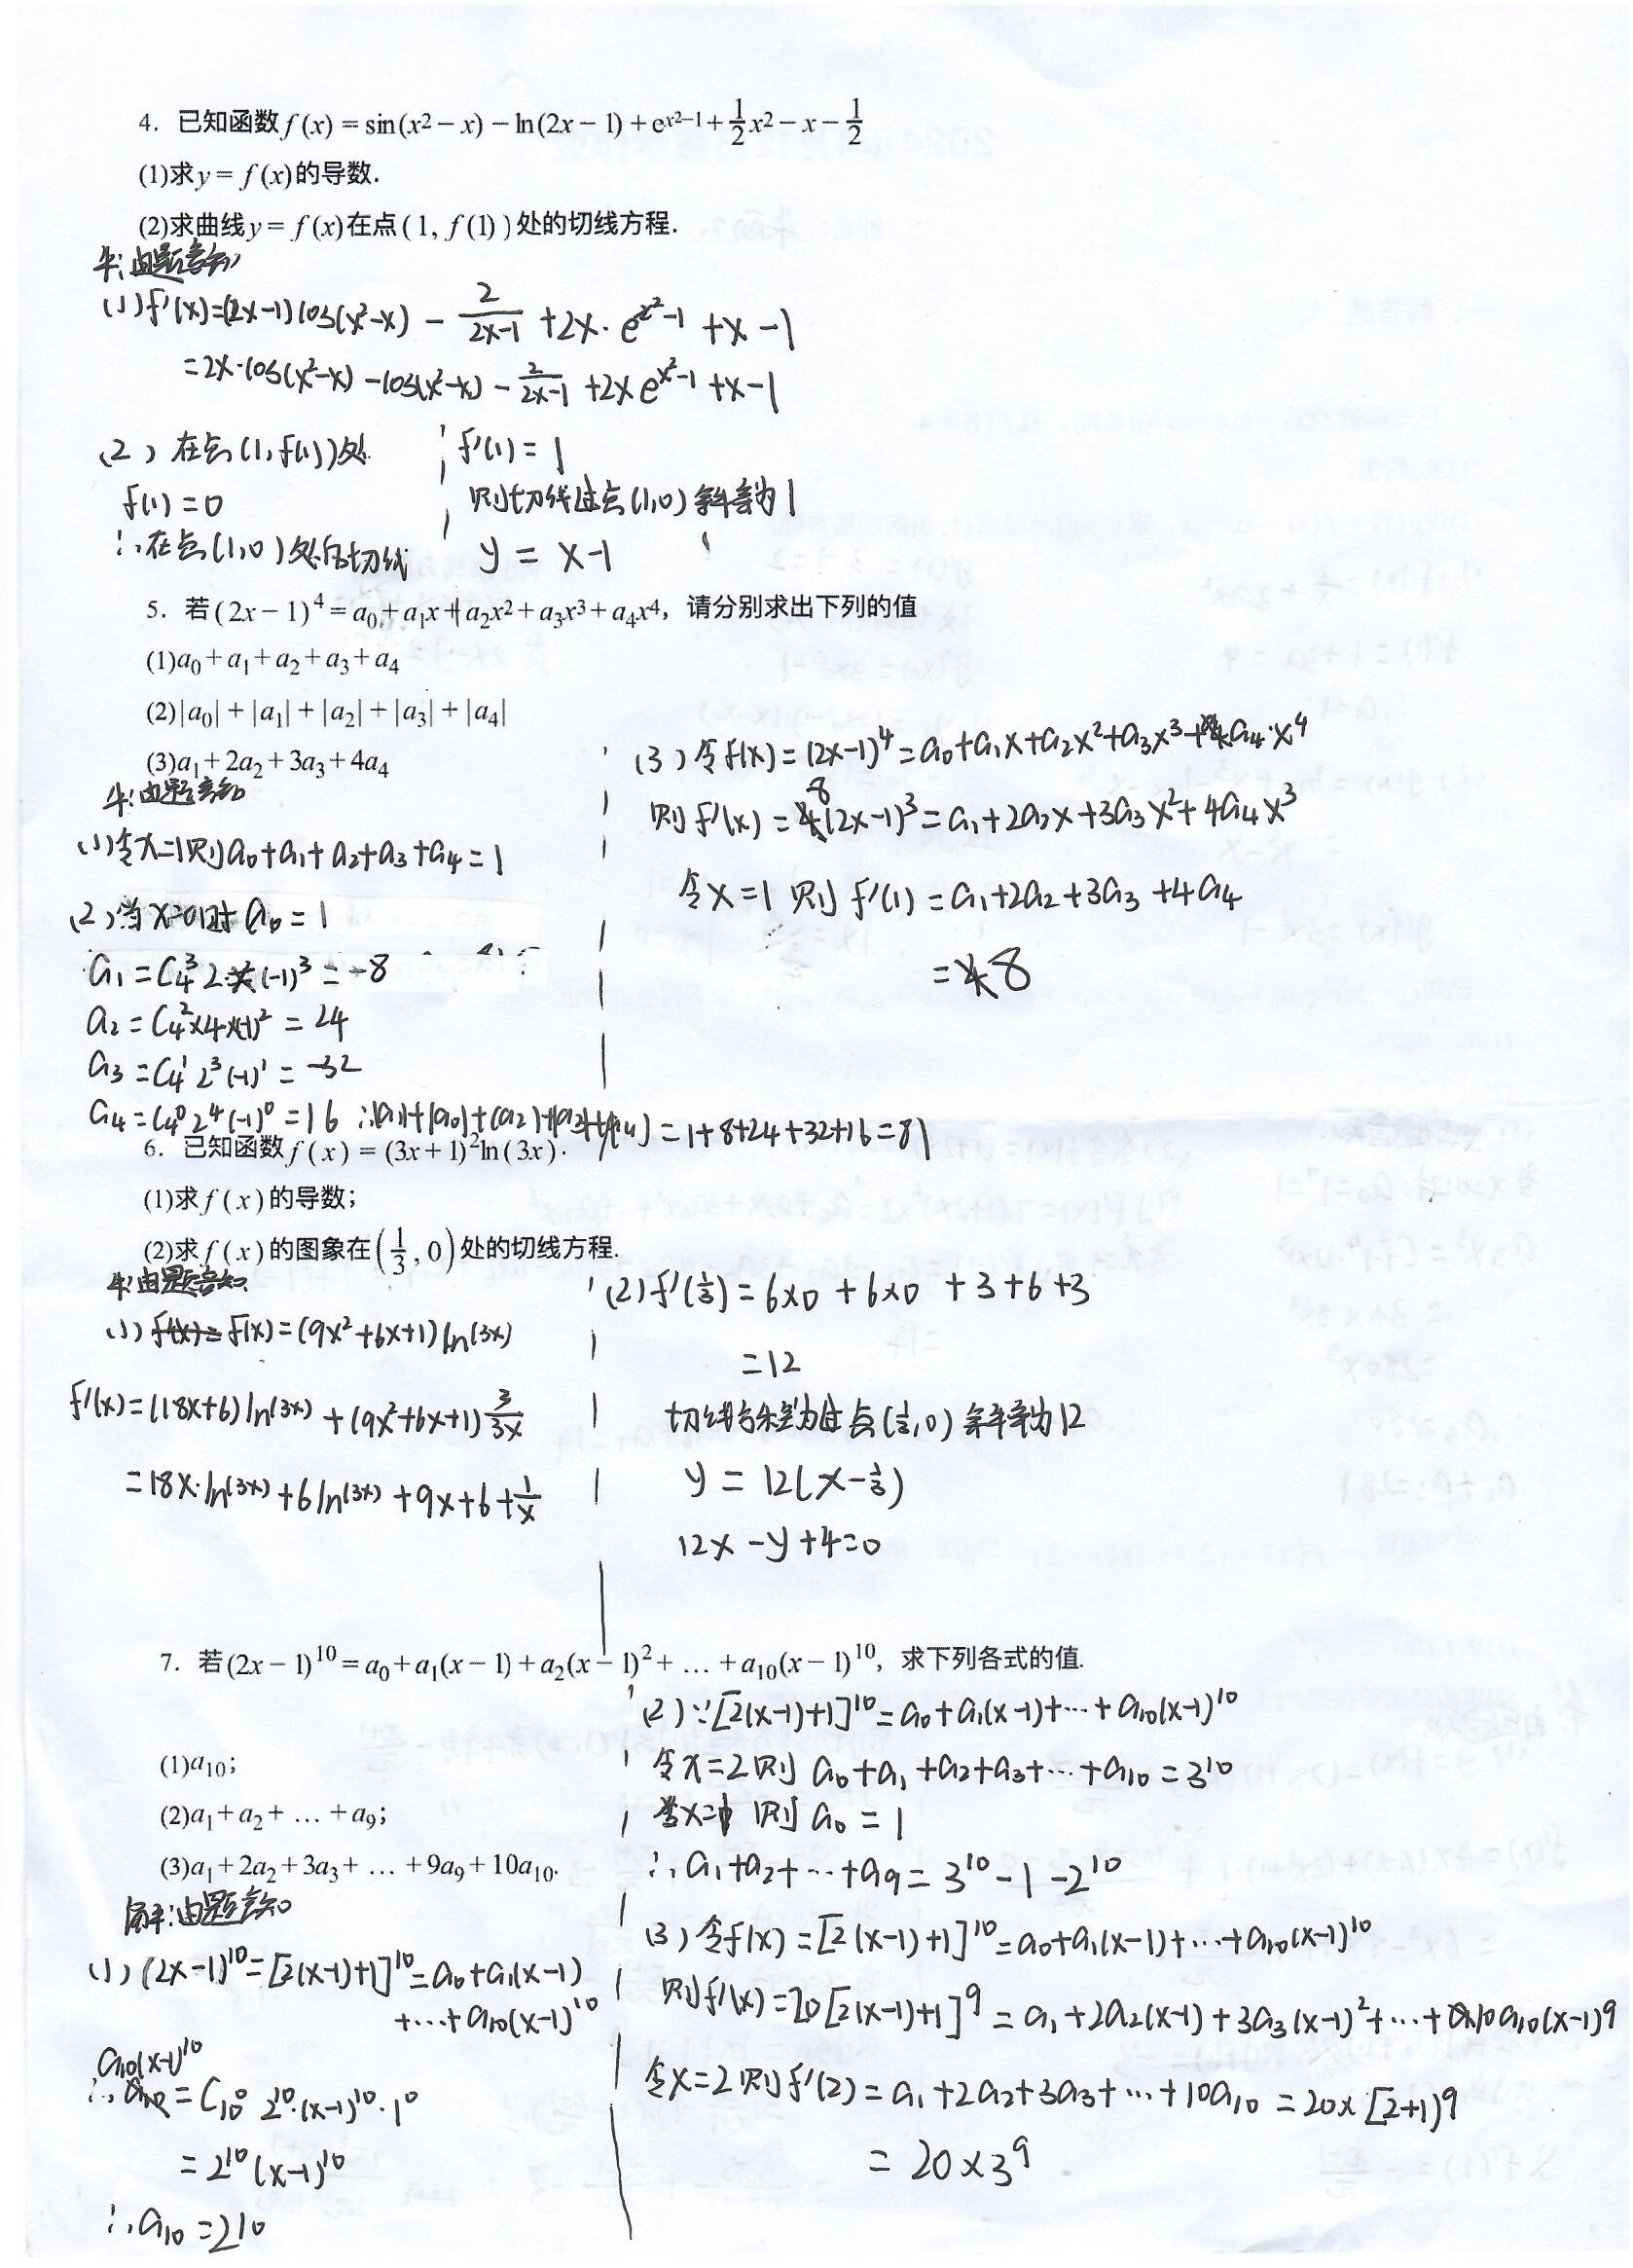 4. 已知函数f(x)=sin(x²-x)-ln(2x-1)+e^{x²-1}+\frac{1}{2}x²-x-\frac{1}{2}
(1)求y=f(x)的导数.
(2)求曲线y=f(x)在点(1, f(1))处的切线方程.
解:由题意知
(1)f'(x)=(2x-1)cos(x²-x)-\frac{2}{2x-1}+2x·e^{x²-1}+x-1
=2x·cos(x²-x)-cos(x²-x)-\frac{2}{2x-1}+2xe^{x²-1}+x-1
(2)在点(1,f(1))处
f(1)=0
∴在点(1,0)处的切线
f'(1)=1
则切线过点(1,0)斜率为1
y=x-1
5. 若(2x-1)⁴=a₀+a₁x+a₂x²+a₃x³+a₄x⁴, 请分别求出下列的值
(1)a₀+a₁+a₂+a₃+a₄
(2)|a₀|+|a₁|+|a₂|+|a₃|+|a₄|
(3)a₁+2a₂+3a₃+4a₄
解:由题意知
(1)令x=1则a₀+a₁+a₂+a₃+a₄=1
(2)当x=0时a₀=1
a₁=C₄³2·(-1)³=-8
a₂=C₄²×4×(-1)²=24
a₃=C₄¹2³(-1)¹=-32
a₄=C₄⁰2⁴(-1)⁰=16 ∴|a₁|+|a₀|+|a₂|+|a₃|+|a₄|=1+8+24+32+16=81
(3)令f(x)=(2x-1)⁴=a₀+a₁x+a₂x²+a₃x³+a₄·x⁴
则f'(x)=8(2x-1)³=a₁+2a₂x+3a₃x²+4a₄x³
令x=1则f'(1)=a₁+2a₂+3a₃+4a₄
=8
6. 已知函数f(x)=(3x+1)²ln(3x).
(1)求f(x)的导数;
(2)求f(x)的图象在(\frac{1}{3}, 0)处的切线方程.
解:由题意知
(1)f(x)=(9x²+6x+1)ln(3x)
f'(x)=(18x+6)ln(3x)+(9x²+6x+1)\frac{3}{3x}
=18x·ln(3x)+6ln(3x)+9x+6+\frac{1}{x}
(2)f'(\frac{1}{3})=6×0+6×0+3+6+3
=12
切线方程为过点(\frac{1}{3},0)斜率为12
y=12(x-\frac{1}{3})
12x-y+4=0
7. 若(2x-1)¹⁰=a₀+a₁(x-1)+a₂(x-1)²+…+a₁₀(x-1)¹⁰, 求下列各式的值.
(1)a₁₀;
(2)a₁+a₂+…+a₉;
(3)a₁+2a₂+3a₃+…+9a₉+10a₁₀.
解:由题意知
(1)(2x-1)¹⁰=[2(x-1)+1]¹⁰=a₀+a₁(x-1)
+…+a₁₀(x-1)¹⁰
a₁₀(x-1)¹⁰
∴=C₁₀⁰2¹⁰·(x-1)¹⁰·1⁰
=2¹⁰(x-1)¹⁰
∴a₁₀=2¹⁰
(2)∵[2(x-1)+1]¹⁰=a₀+a₁(x-1)+…+a₁₀(x-1)¹⁰
令x=2则a₀+a₁+a₂+a₃+…+a₁₀=3¹⁰
当x=1则a₀=1
∴a₁+a₂+…+a₉=3¹⁰-1-2¹⁰
(3)令f(x)=[2(x-1)+1]¹⁰=a₀+a₁(x-1)+…+a₁₀(x-1)¹⁰
则f'(x)=20[2(x-1)+1]⁹=a₁+2a₂(x-1)+3a₃(x-1)²+…+10a₁₀(x-1)⁹
令x=2则f'(2)=a₁+2a₂+3a₃+…+10a₁₀=20×[2+1]⁹
=20×3⁹